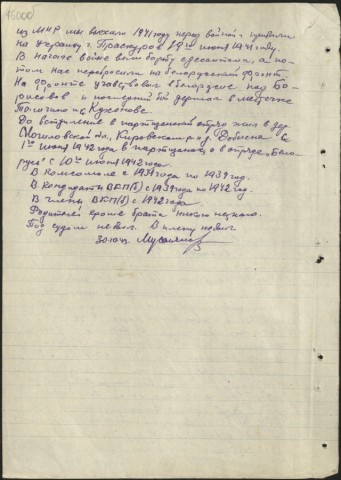 16000
из МНР мы выехали 1941 году перед войной и прибыли
на Украину г. Праскуров 18го июня 1941 году.
В начале войне вели борьбу десантами, а по-
том нас перебросили на белорусский фронт.
На фронте участвовал в Белорусие под Бо-
рисовов и последний бой держал в местечке
Погосино и с. Кухоново.
До вступление в партизанский отряд жил в дер.
Могилевской обл., Кировском р-не д. Добосна. С
1го июня 1942 года в партизанского отряда "Бело
русь" с 10го июня 1942 года.
В Комсомоле с 1931 года по 1939 год.
В Кандидаты ВКП(б) с 1939 года по 1942 год.
В члены ВКП(б) с 1942 года.
Родителей кроме брата никого нет.
Под судом не был. В плену не был.